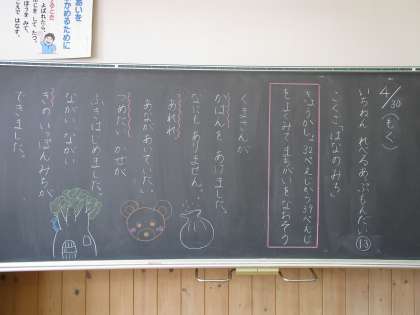 4/30（もく）
いちねん れべるあっぷもんだい⑬
こくご「はなのみち」
きょうかしょ32ぺえじから39ぺえじ
をよくみてまちがいをなおそう
くまさんが
かばんをあけました。
なにもありません。
あれれ
あながあいていた。
つめたい かぜが
ふきはじめました。
ながい ながい
きのいっぽんみちが
できました。
あいを
かめるために